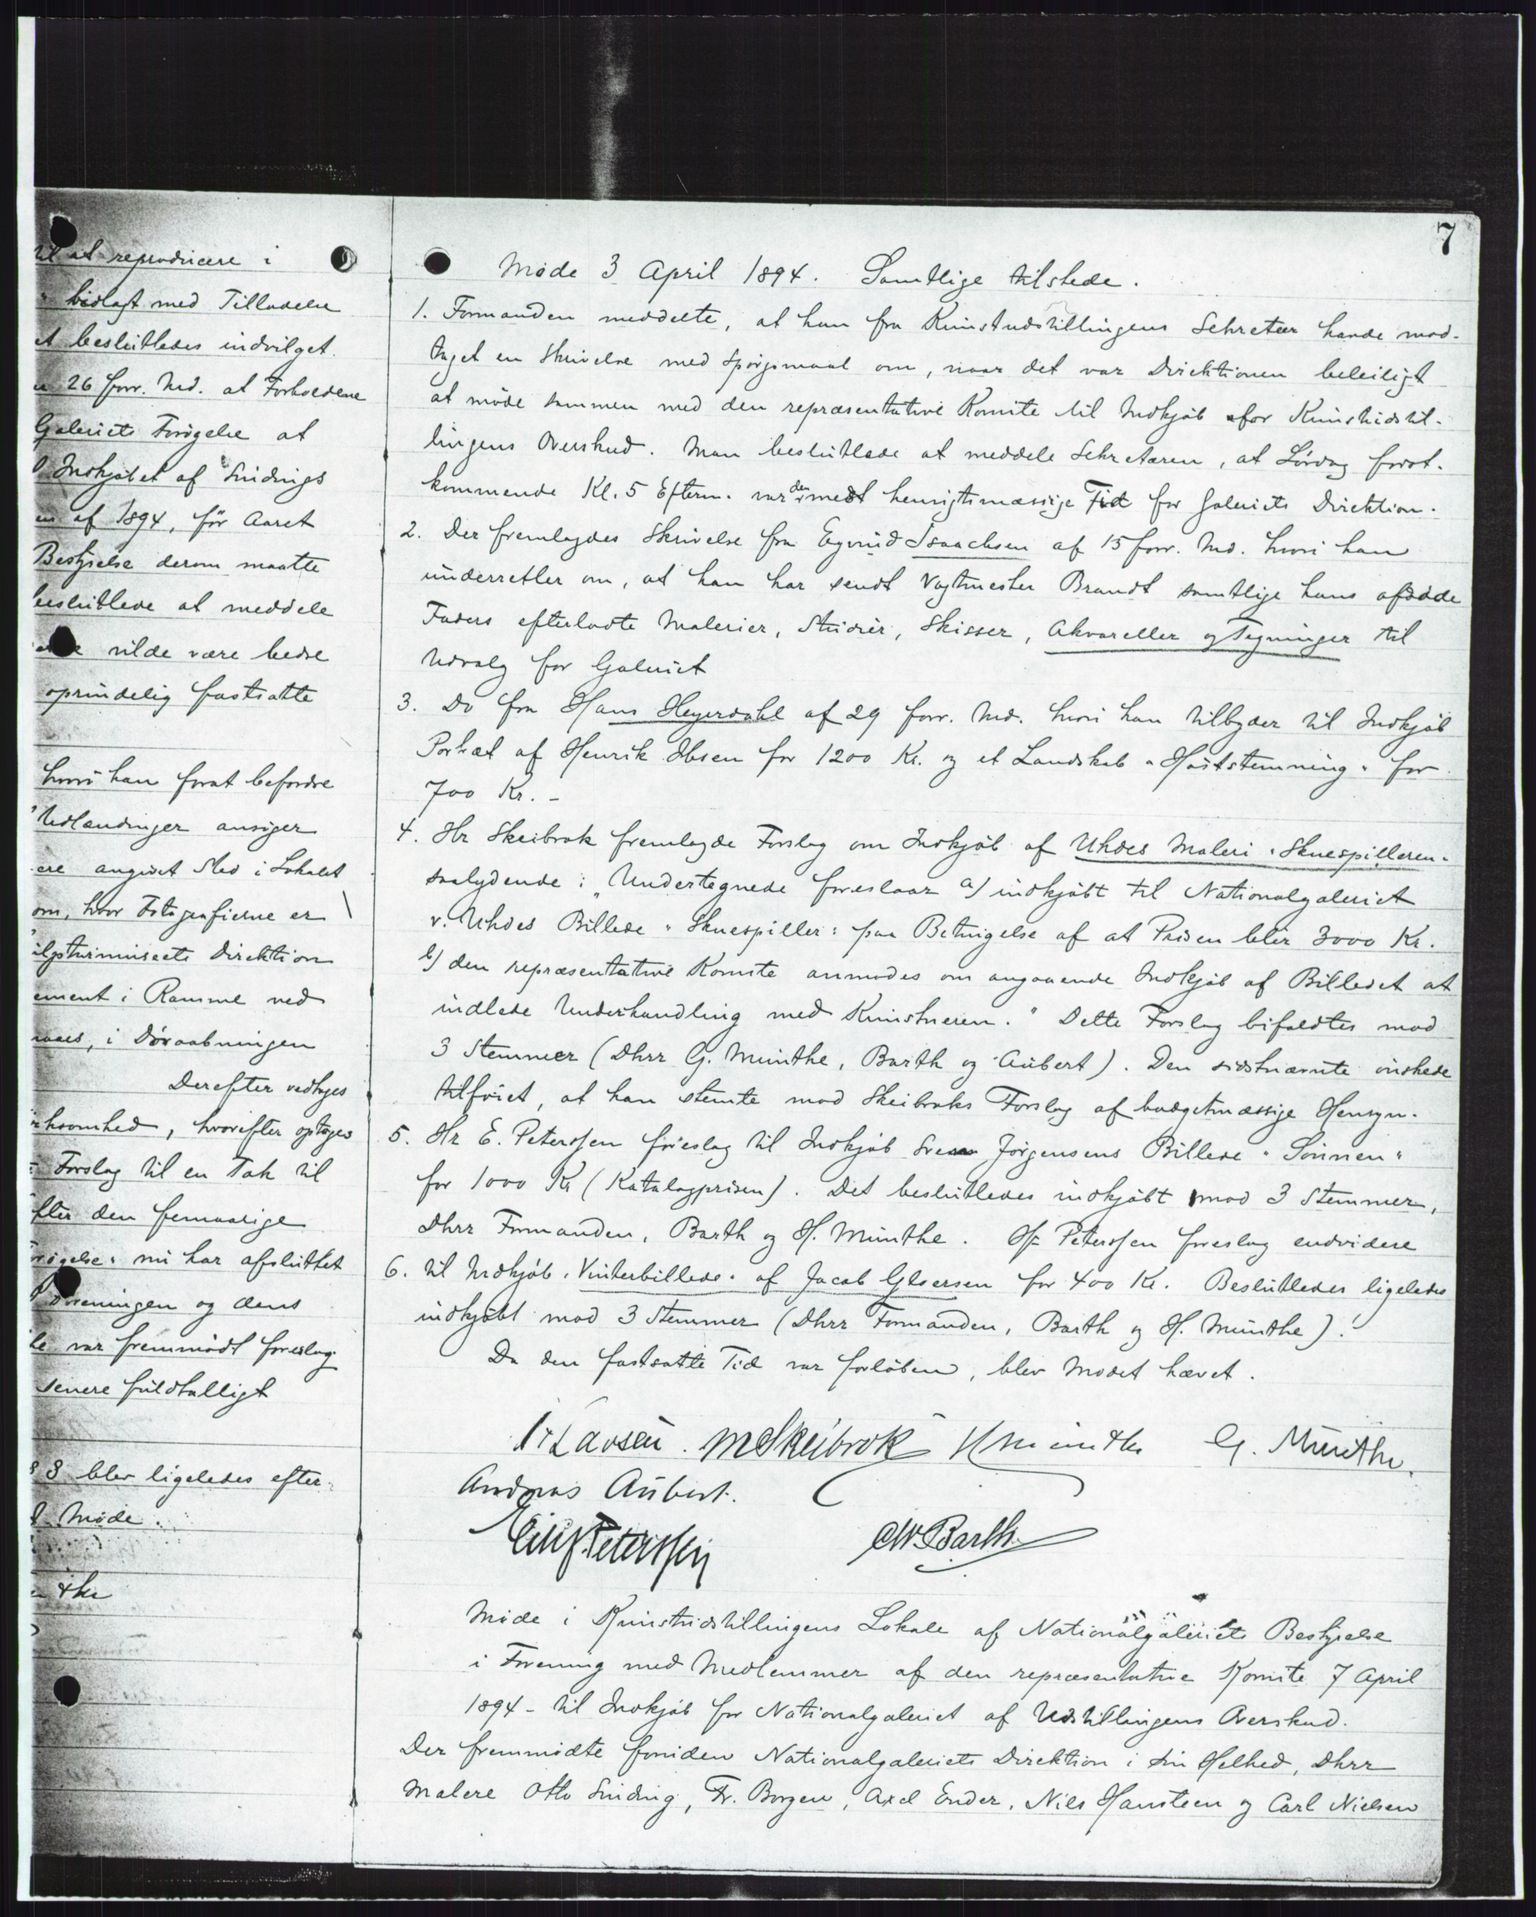 til at reproducere i
bilagt med Tilladelse
et besluttedes indvilget.
26 forr. Md. at Forholdene
Galeriets Forøgelse at
Indkjøbet af Sindings
en af 1894, før Aaret
Bestyrelse derom maatte
besluttede at meddele
vilde være bedre
oprindelig fastsatte
hvori han forat befordre
Udlændinger ansøger
ere angivet Sted i Lokalet
om, hvor Fotografierne er
Direktion
ement i Ramme ved
i Døraabningen
Derefter vedtoges
rksomhed, hvorefter optoges
Forslag til en Tak til
fter den femaarige
nu har afsluttet
Foreningen og dens
var fremmødt foreslag
senere fuldtalligt
3 blev ligeledes efter
Møde.
7
Møde 3 April 1894. Samtlige tilstede.
1. Formanden meddelte, at han fra Kunstudstillingens Sekretær havde mod-
taget en Skrivelse med Spørgsmaal om, naar det var Direktionen beleiligt
at møde sammen med den repræsentative Komite til Indkjøb for Kunstudstil-
lingens Overskud. Man besluttede at meddele Sekretæren, at Lørdag førstt-
kommende Kl. 5 Efterm. var den mest hensigtsmæssige Tid for Galeriets Direktion.
2. Der fremlagdes Skrivelse fra Eyvind Isaachsen af 15 forr. Md. hvori han
underretter om, at han har sendt Vagtmester Brandt samtlige hans afdøde
Faders efterladte Malerier, Studier, Skisser, Akvareller og Tegninger til
Udvalg for Galeriet
3. Do fra Hans Heyerdahl af 29 forr. Md. hvori han tilbyder til Indkjøb
Portræt af Henrik Ibsen for 1200 Kr. og et Landskab "Høststemning" for
700 Kr. -
4. Hr Skeibrok fremlagde Forslag om Indkjøb af Uhdes Maleri "Skuespilleren"
saalydende: "Undertegnede foreslaar a) indkjøbt til Nationalgaleriet
v. Uhdes Billede "Skuespiller" paa Betingelse af at Prisen blir 3000 Kr.
b) den repræsentative Komite anmodes om angaaende Indkjøb af Billedet at
indlede Underhandling med Kunstneren." Dette Forslag bifaldtes mod
3 Stemmer (Dhrr G. Munthe, Barth og Aubert). Den sidstnævnte ønskede
tilføiet, at han stemte mod Skeibroks Forslag af budgetmæssige Hensyn.
5. Hr E. Peterssen foreslog til Indkjøb Sven Jørgensens Billede "Sønnen"
for 1000 Kr (Katalogprisen). Det besluttedes indkjøbt mod 3 Stemmer,
Dhrr Formanden, Barth og H. Munthe. Hr Peterssen foreslog endvidere
6. til Indkjøb "Vinterbillede" af Jacob Glørsen for 400 Kr. Besluttedes ligeledes
indkjøbt mod 3 Stemmer (Dhrr Formanden, Barth og H. Munthe).
Da den fastsatte Tid var forløben, blev Mødet hævet.
Larsen. M Skeibrok H Munthe G. Munthe.
Andreas Aubert.
Eilif Peterssen CW. Barth
Møde i Kunstudstillingens Lokale af Nationalgaleriets Bestyrelse
i Forening med Medlemmer af den repræsentative Komite 7 April
1894 - til Indkjøb for Nationalgaleriet af Udstillingens Overskud.
Der fremmødte foruden Nationalgaleriets Direktion i sin Helhed, Dhrr
Malere Otto Sinding, Fr. Borgen, Axel Ender, Nils Hansteen og Carl Nielsen